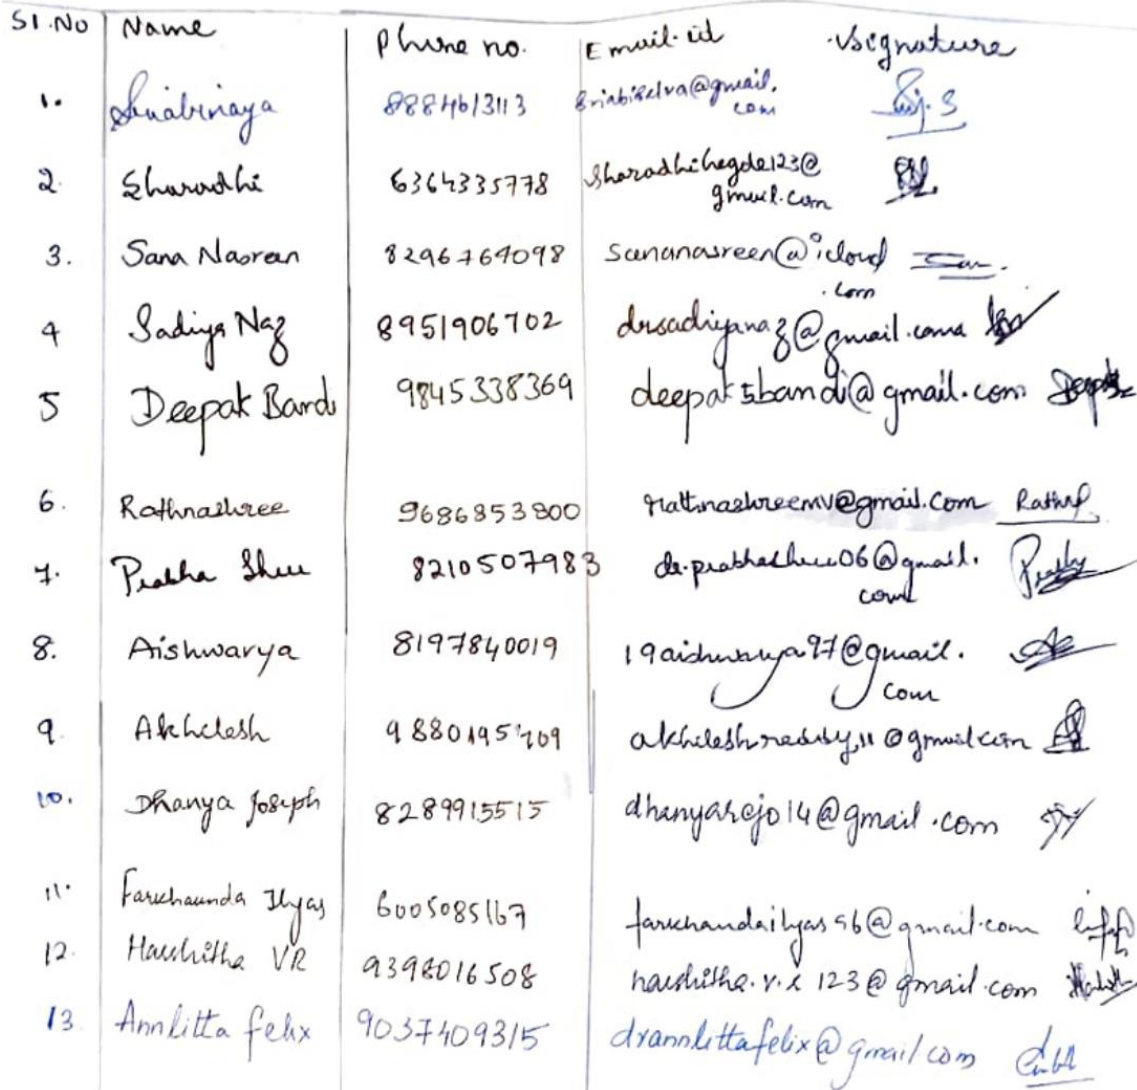 Sl.No Name Phone no. Email-id Signature
1. Sriabinaya 8884613113 sriabiselva@gmail.
com
2. Sharadhi 6364335778 sharadhihegde123@
gmail.com
3. Sana Nasreen 8296764098 sananasreen@icloud
.com
4 Sadiya Naz 8951906702 drsadiyanaz@gmail.com
5 Deepak Bandi 9845338369 deepaksbandi@gmail.com Deepak
6. Rathnashree 9686853800 rathnashreemv@gmail.com
7. Prabha Shree 8210507983 dr.prabhashree06@gmail.
com
8. Aishwarya 8197840019 19aishwarya97@gmail.
com
9. Akhilesh akhileshreddy11@gmail.com
10. Dhanya Joseph 8289915515 dhanyarejo14@gmail.com
11. Farkhaunda Ilyas 6005085167 farkhandailyas96@gmail.com
12. Harshitha VR 9398016508 harshitha.v.r123@gmail.com
13. Annlitta felix 9037409315 drannlittafelix@gmail.com